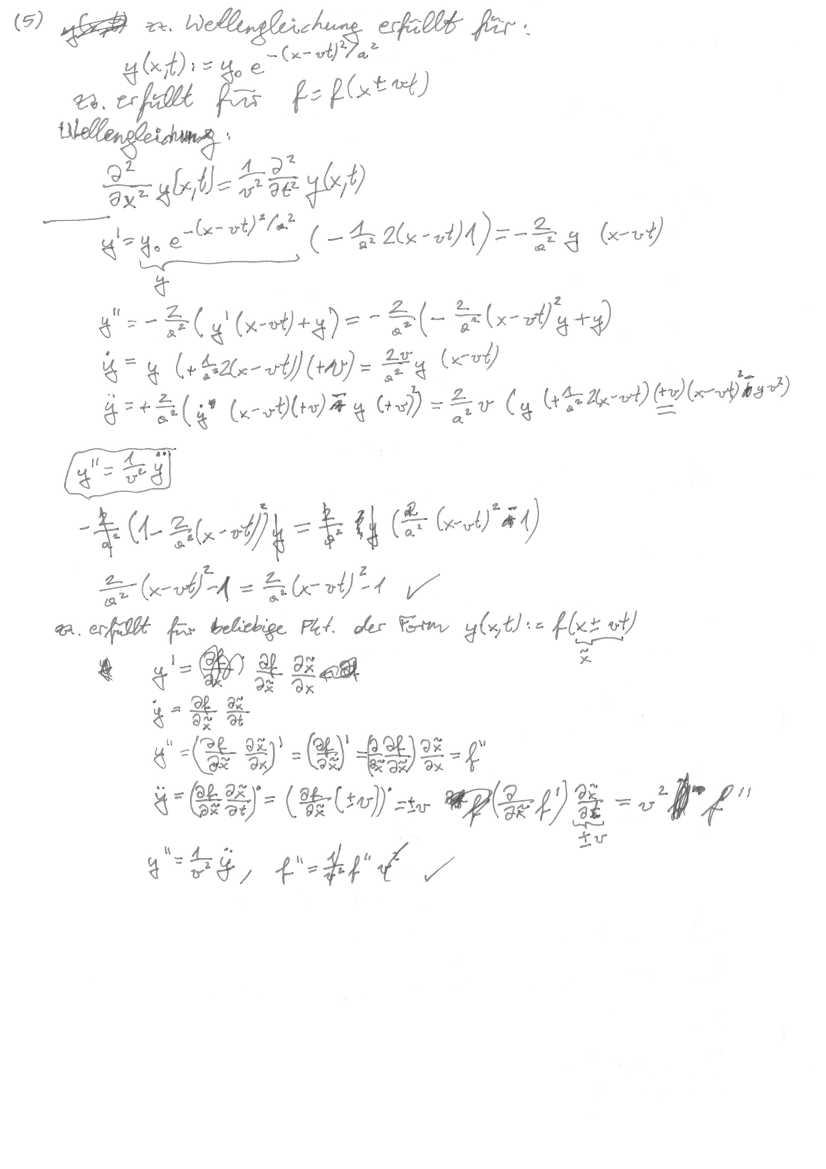 (5) zz. Wellengleichung erfüllt für:
y(x,t) := y₀ e^{-(x-vt)²/a²}
zz. erfüllt für f = f(x ± vt)
Wellengleichung:
∂²/∂x² y(x,t) = 1/v² ∂²/∂t² y(x,t)
y' = y₀ e^{-(x-vt)²/a²} (-1/a² 2(x-vt)1) = -2/a² y (x-vt)
y
y'' = -2/a² (y'(x-vt)+y) = -2/a² (-2/a² (x-vt)² y + y)
ẏ = y (+1/a² 2(x-vt))(+v) = 2v/a² y (x-vt)
ÿ = +2/a² (ẏ (x-vt)(+v) - y (+v)²) = 2/a² v (y (+1/a² 2(x-vt)(+v)(x-vt)² - y v²)
y'' = 1/v² ÿ
-2/a² (1 - 2/a² (x-vt)²) y = 2/a² y (2/a² (x-vt)² - 1)
2/a² (x-vt)² - 1 = 2/a² (x-vt)² - 1 ✓
zz. erfüllt für beliebige Fkt. der Form y(x,t) := f(x ± vt)
x̃
y' = ∂f/∂x̃ ∂x̃/∂x
ẏ = ∂f/∂x̃ ∂x̃/∂t
y'' = (∂f/∂x̃ ∂x̃/∂x)' = (∂f/∂x̃)' = (∂/∂x̃ ∂f/∂x̃) ∂x̃/∂x = f''
ÿ = (∂f/∂x̃ ∂x̃/∂t)˙ = (∂f/∂x̃ (±v))˙ = ±v (∂/∂x̃ f') ∂x̃/∂t = v² f''
±v
y'' = 1/v² ÿ, f'' = 1/v² f'' v² ✓